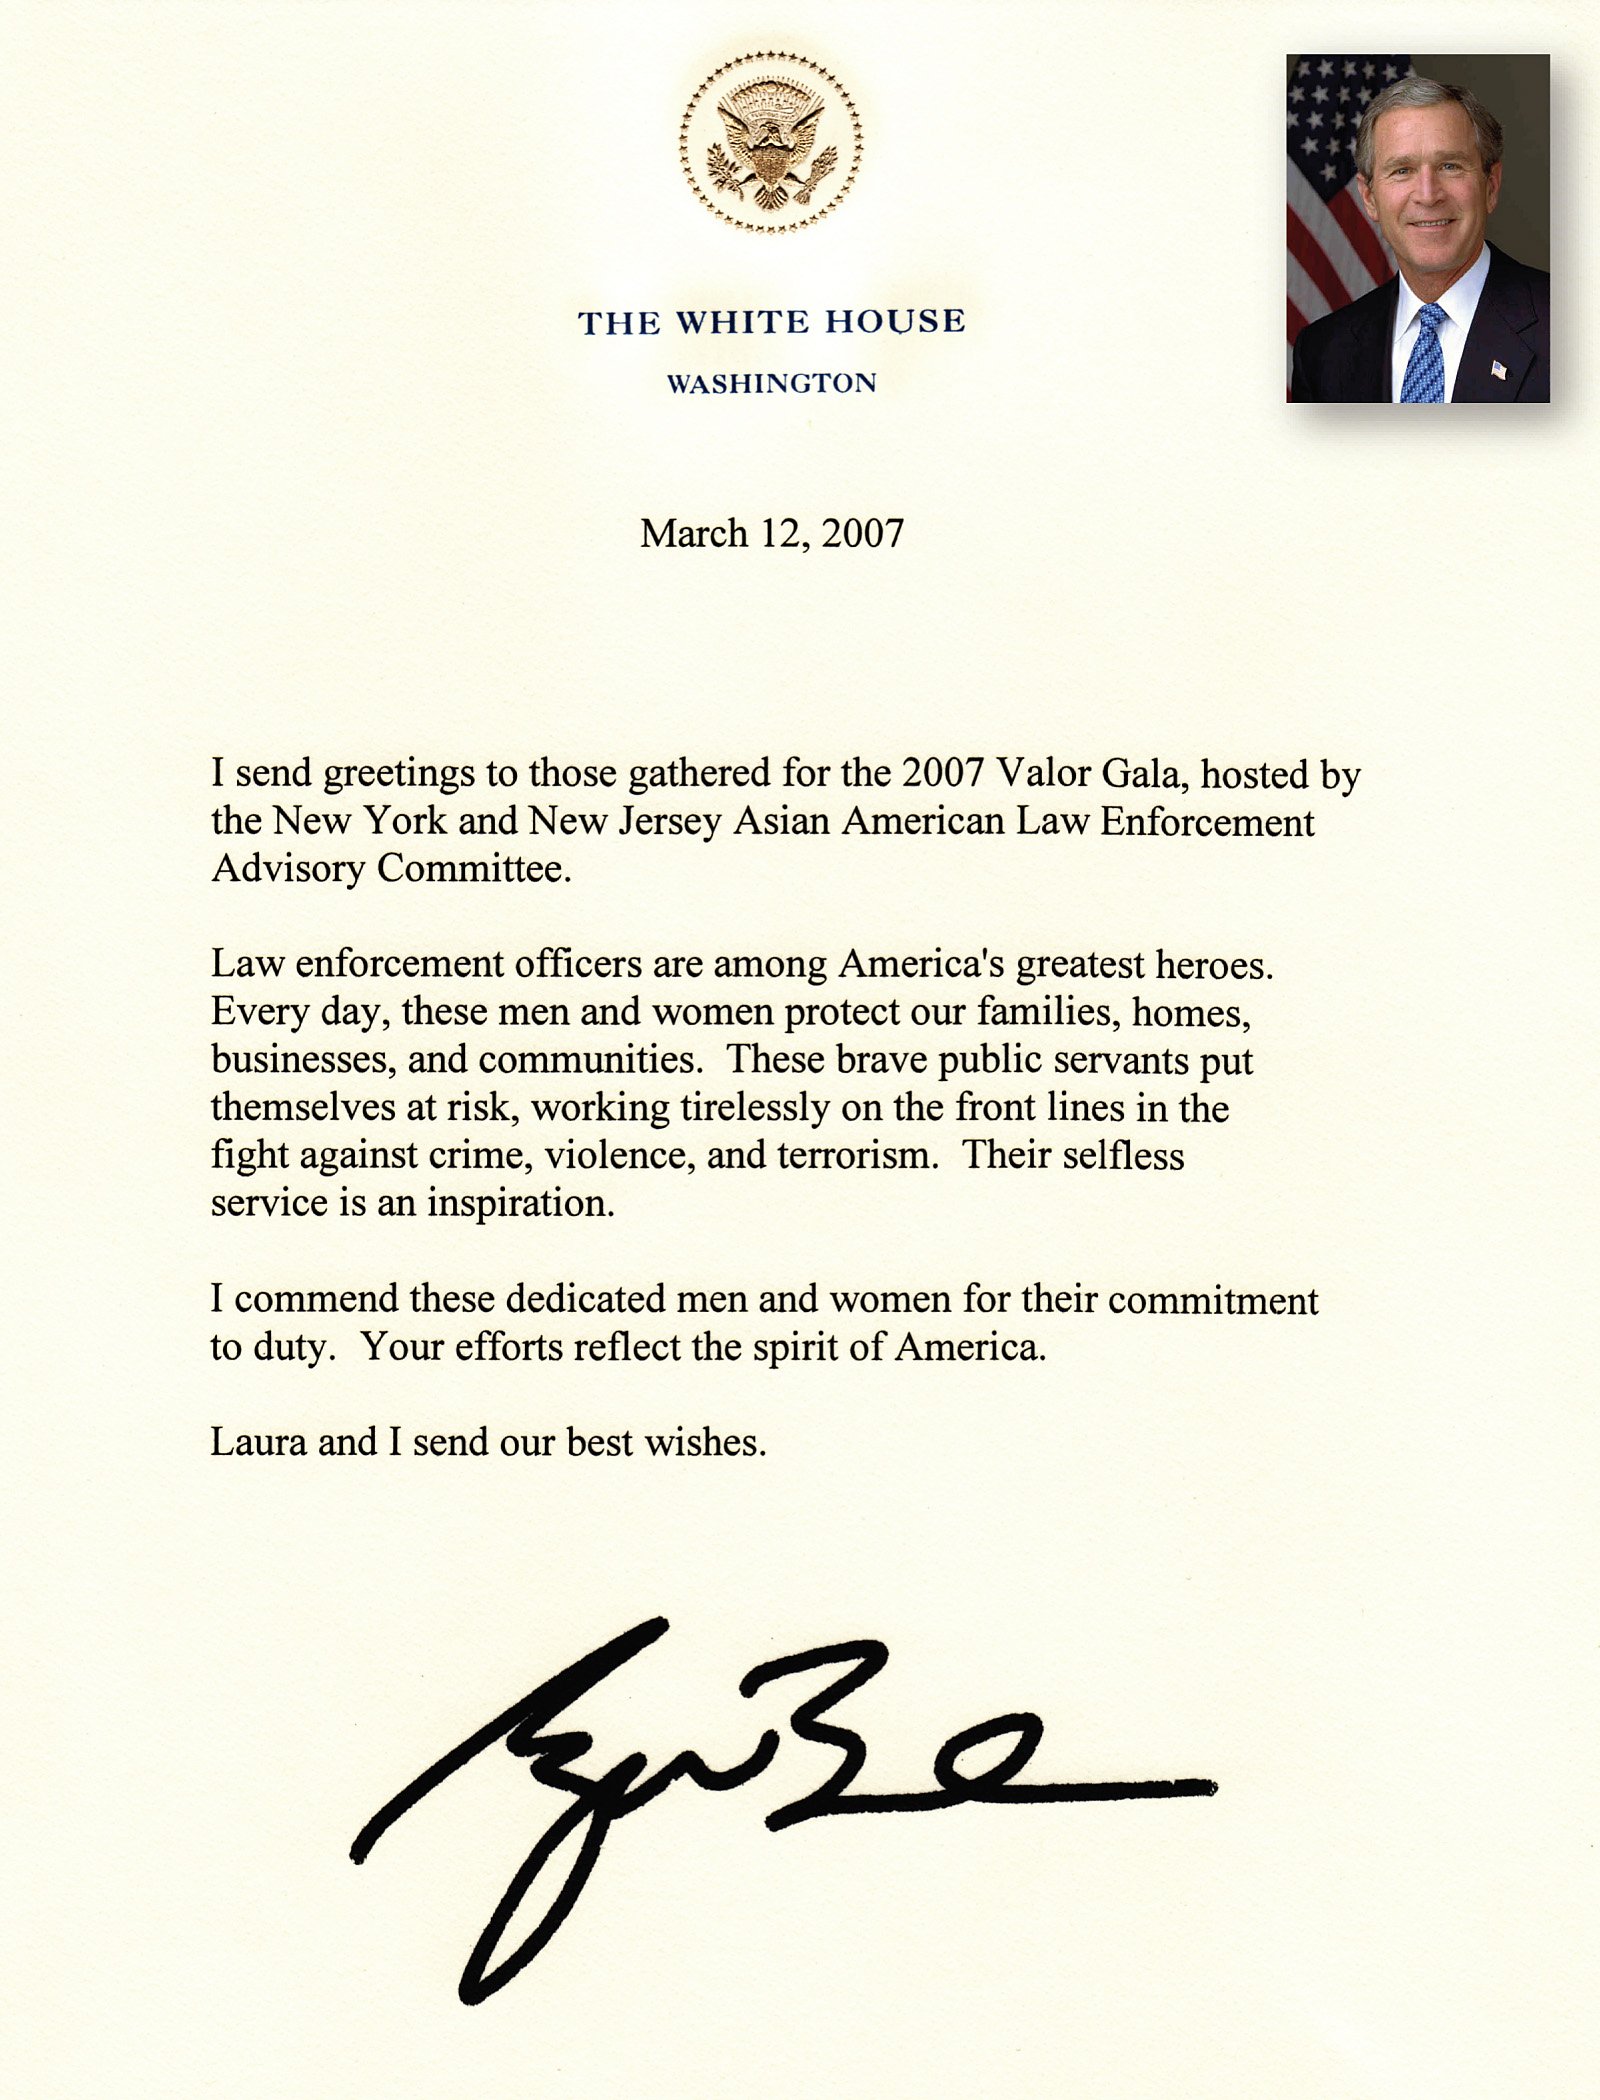 THE WHITE HOUSE
WASHINGTON
March 12, 2007
I send greetings to those gathered for the 2007 Valor Gala, hosted by
the New York and New Jersey Asian American Law Enforcement
Advisory Committee.
Law enforcement officers are among America's greatest heroes.
Every day, these men and women protect our families, homes,
businesses, and communities.  These brave public servants put
themselves at risk, working tirelessly on the front lines in the
fight against crime, violence, and terrorism.  Their selfless
service is an inspiration.
I commend these dedicated men and women for their commitment
to duty.  Your efforts reflect the spirit of America.
Laura and I send our best wishes.